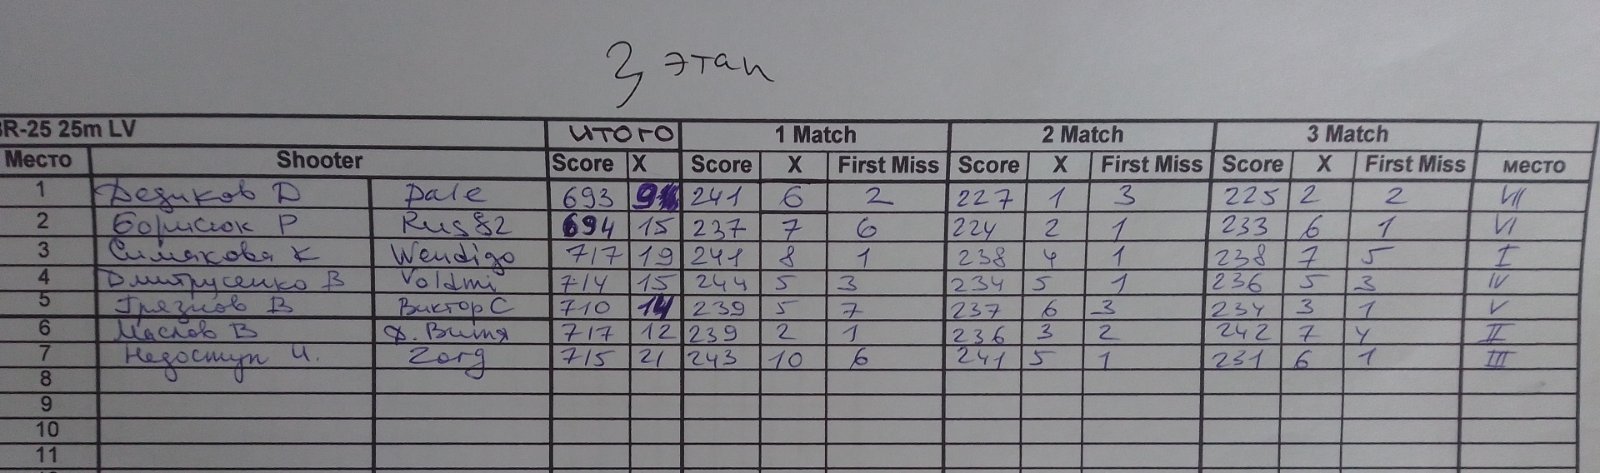 3 этап
BR-25 25m LV ИТОГО 1 Match 2 Match 3 Match
Место Shooter Score X Score X First Miss Score X First Miss Score X First Miss место
1 Дедиков D Dale 693 9 241 6 2 227 1 3 225 2 2 VII
2 Борисюк Р Rus82 694 15 237 7 6 224 2 1 233 6 1 VI
3 Симакова К Wendigo 717 19 241 8 1 238 4 1 238 7 5 I
4 Дмитрусенко В Voldmi 714 15 244 5 3 234 5 1 236 5 3 IV
5 Грязнов В Виктор С 710 14 239 5 7 237 6 3 234 3 1 V
6 Маслов В Ф. Витя 717 12 239 2 1 236 3 2 242 7 4 II
7 Недоступ И. Zorg 715 21 243 10 6 241 5 1 231 6 1 III
8
9
10
11